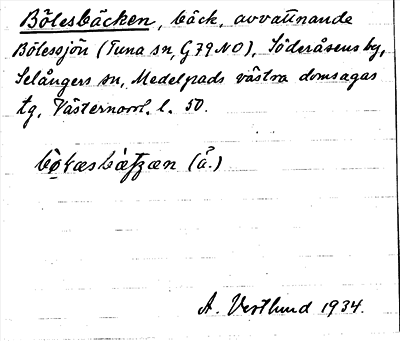 Bölesbäcken, bäck, avvattnande
Bölessjön (Tuna sn, G79NO), Söderåsens by,
Selångers sn, Medelpads västra domsagas
tg, Västernorrl. l. 50.
(å.)
A. Vestlund 1934.